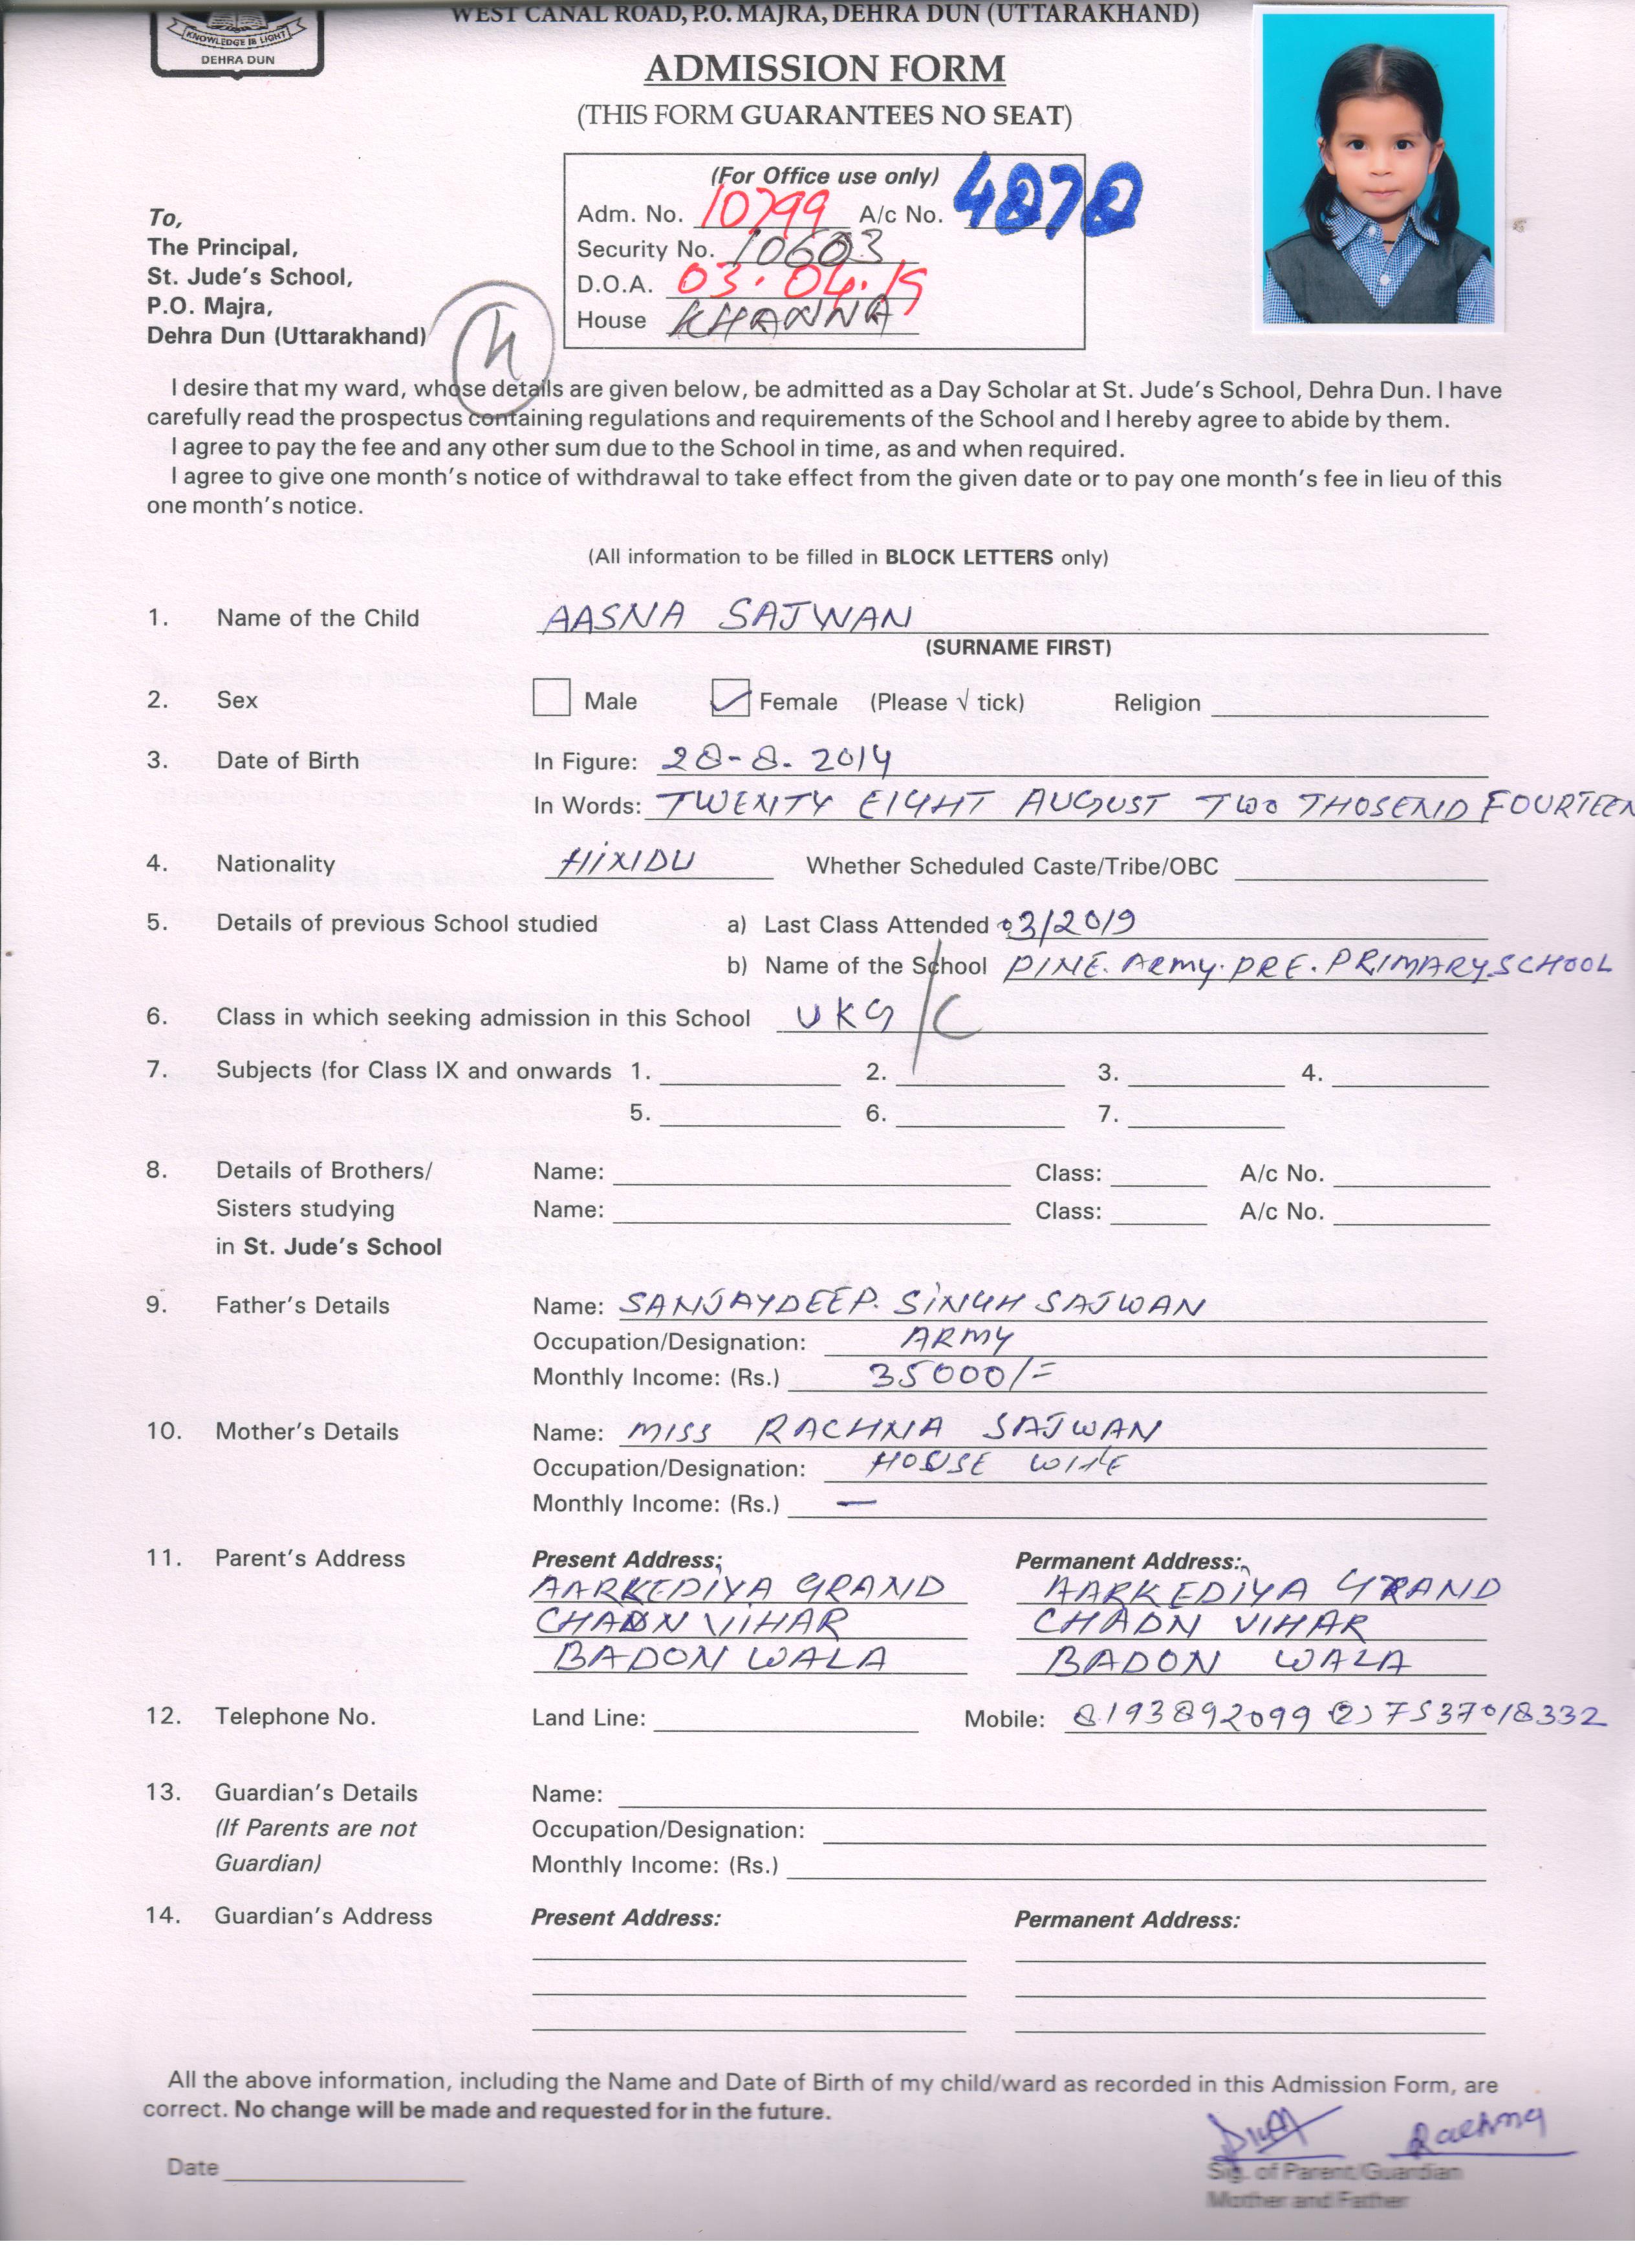 WEST CANAL ROAD, P.O. MAJRA, DEHRA DUN (UTTARAKHAND)
KNOWLEDGE IS LIGHT
DEHRA DUN
ADMISSION FORM
(THIS FORM GUARANTEES NO SEAT)
(For Office use only)
Adm. No. 10799 A/c No. 4878
Security No. 10603
D.O.A. 03.04.19
House KHANNA
To,
The Principal,
St. Jude's School,
P.O. Majra,
Dehra Dun (Uttarakhand)
I desire that my ward, whose details are given below, be admitted as a Day Scholar at St. Jude's School, Dehra Dun. I have
carefully read the prospectus containing regulations and requirements of the School and I hereby agree to abide by them.
I agree to pay the fee and any other sum due to the School in time, as and when required.
I agree to give one month's notice of withdrawal to take effect from the given date or to pay one month's fee in lieu of this
one month's notice.
(All information to be filled in BLOCK LETTERS only)
1. Name of the Child AASNA SAJWAN
(SURNAME FIRST)
2. Sex Male Female (Please √ tick) Religion
3. Date of Birth In Figure: 28-8. 2014
In Words: TWENTY EIGHT AUGUST TWO THOSEND FOURTEEN
4. Nationality HINDU Whether Scheduled Caste/Tribe/OBC
5. Details of previous School studied a) Last Class Attended 03/2019
b) Name of the School PINE. ARMY. PRE. PRIMARY SCHOOL
6. Class in which seeking admission in this School UKG /C
7. Subjects (for Class IX and onwards 1. 2. 3. 4.
5. 6. 7.
8. Details of Brothers/ Name: Class: A/c No.
Sisters studying Name: Class: A/c No.
in St. Jude's School
9. Father's Details Name: SANJAYDEEP. SINGH SAJWAN
Occupation/Designation: ARMY
Monthly Income: (Rs.) 35000/=
10. Mother's Details Name: MISS RACHNA SAJWAN
Occupation/Designation: HOUSE WIFE
Monthly Income: (Rs.) —
11. Parent's Address Present Address: Permanent Address:
AARKEDIYA GRAND AARKEDIYA GRAND
CHADN VIHAR CHADN VIHAR
BADON WALA BADON WALA
12. Telephone No. Land Line: Mobile: 8193892099 (2) 7537018332
13. Guardian's Details Name:
(If Parents are not Occupation/Designation:
Guardian) Monthly Income: (Rs.)
14. Guardian's Address Present Address: Permanent Address:
All the above information, including the Name and Date of Birth of my child/ward as recorded in this Admission Form, are
correct. No change will be made and requested for in the future.
Rachna
Date Sig. of Parent/Guardian
Mother and Father